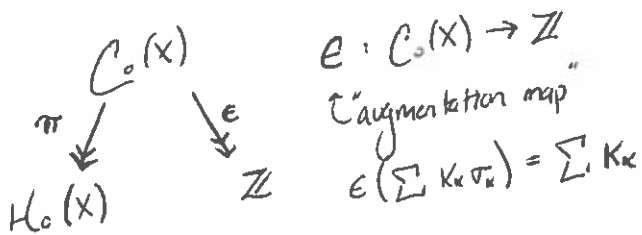 C₀(X)
π ε
H₀(X) ℤ
e : C₀(X) → ℤ
↑ "augmentation map"
ε(∑ Kₓσₓ) = ∑ Kₓ